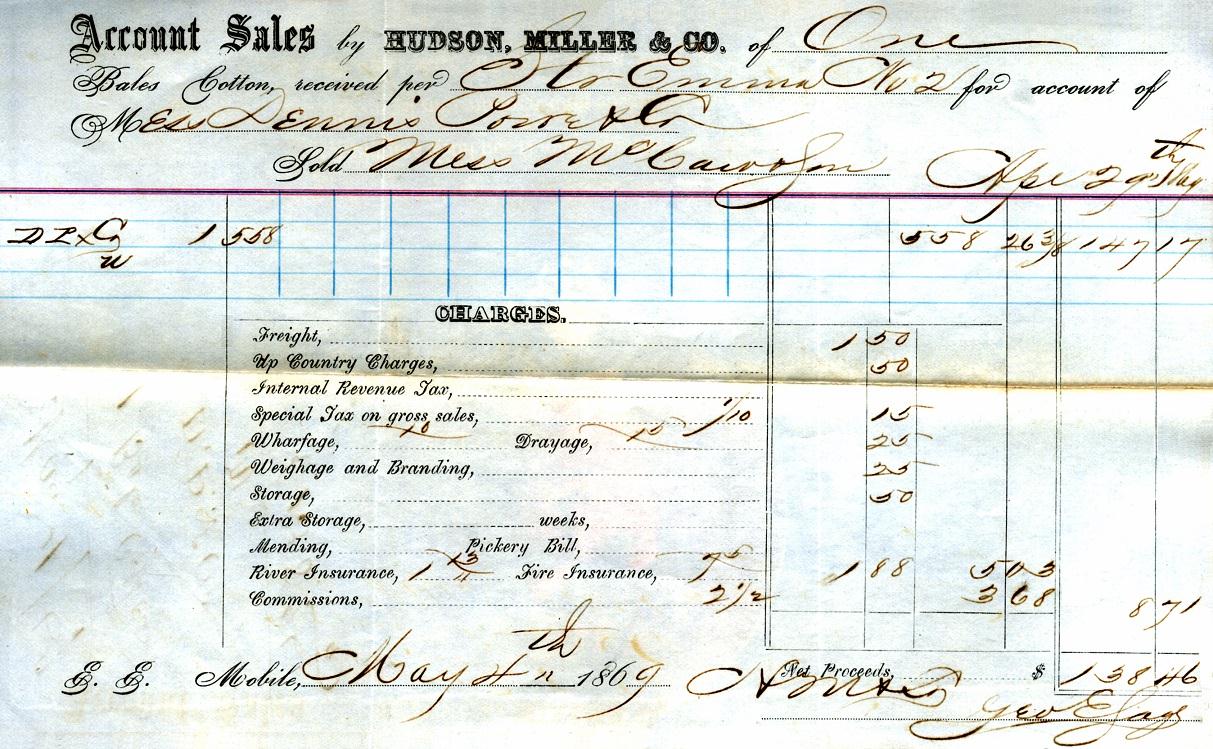 Account Sales by HUDSON, MILLER & CO. of One
Bales Cotton, received per Str Emma No 2 for account of
Mess Dennis Powe & Co
Sold Mess McCaw & Son Apl 29th
DPxCo 1 558 558 26 3/8 147 17
W
CHARGES.
Freight, 1 50
Up Country Charges, 50
Internal Revenue Tax,
Special Tax on gross sales, 1/10 15
Wharfage, 10 Drayage, 15 25
Weighage and Branding, 25
Storage, 50
Extra Storage, weeks,
Mending, Pickery Bill,
River Insurance, 1 13 Fire Insurance, 75 1 88 5 03
Commissions, 2 1/2 3 68 8 71
E. E. Mobile, May 4th 1869 Net Proceeds, $ 138 46
H M & Co
Geo E